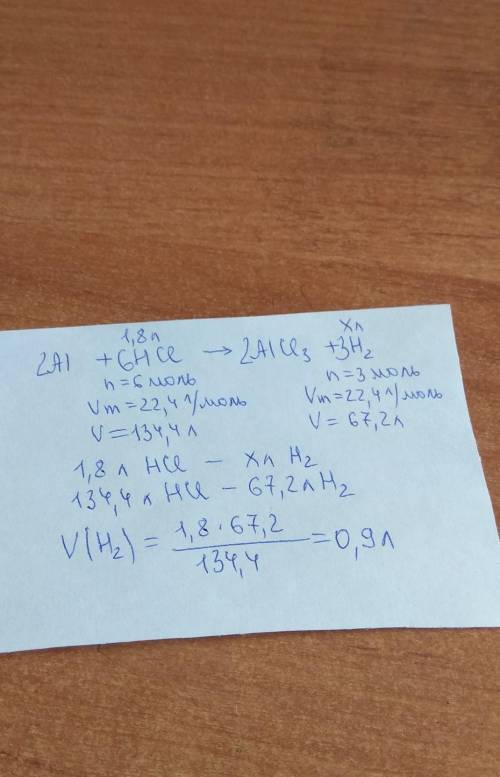 1,8л xл
2Al + 6HCl → 2AlCl₃ + 3H₂
n=6 моль n=3 моль
Vm=22,4 л/моль Vm=22,4 л/моль
V=134,4 л V= 67,2 л
1,8 л HCl – xл H₂
134,4 л HCl – 67,2 л H₂
V(H₂) = 1,8 · 67,2 / 134,4 = 0,9 л